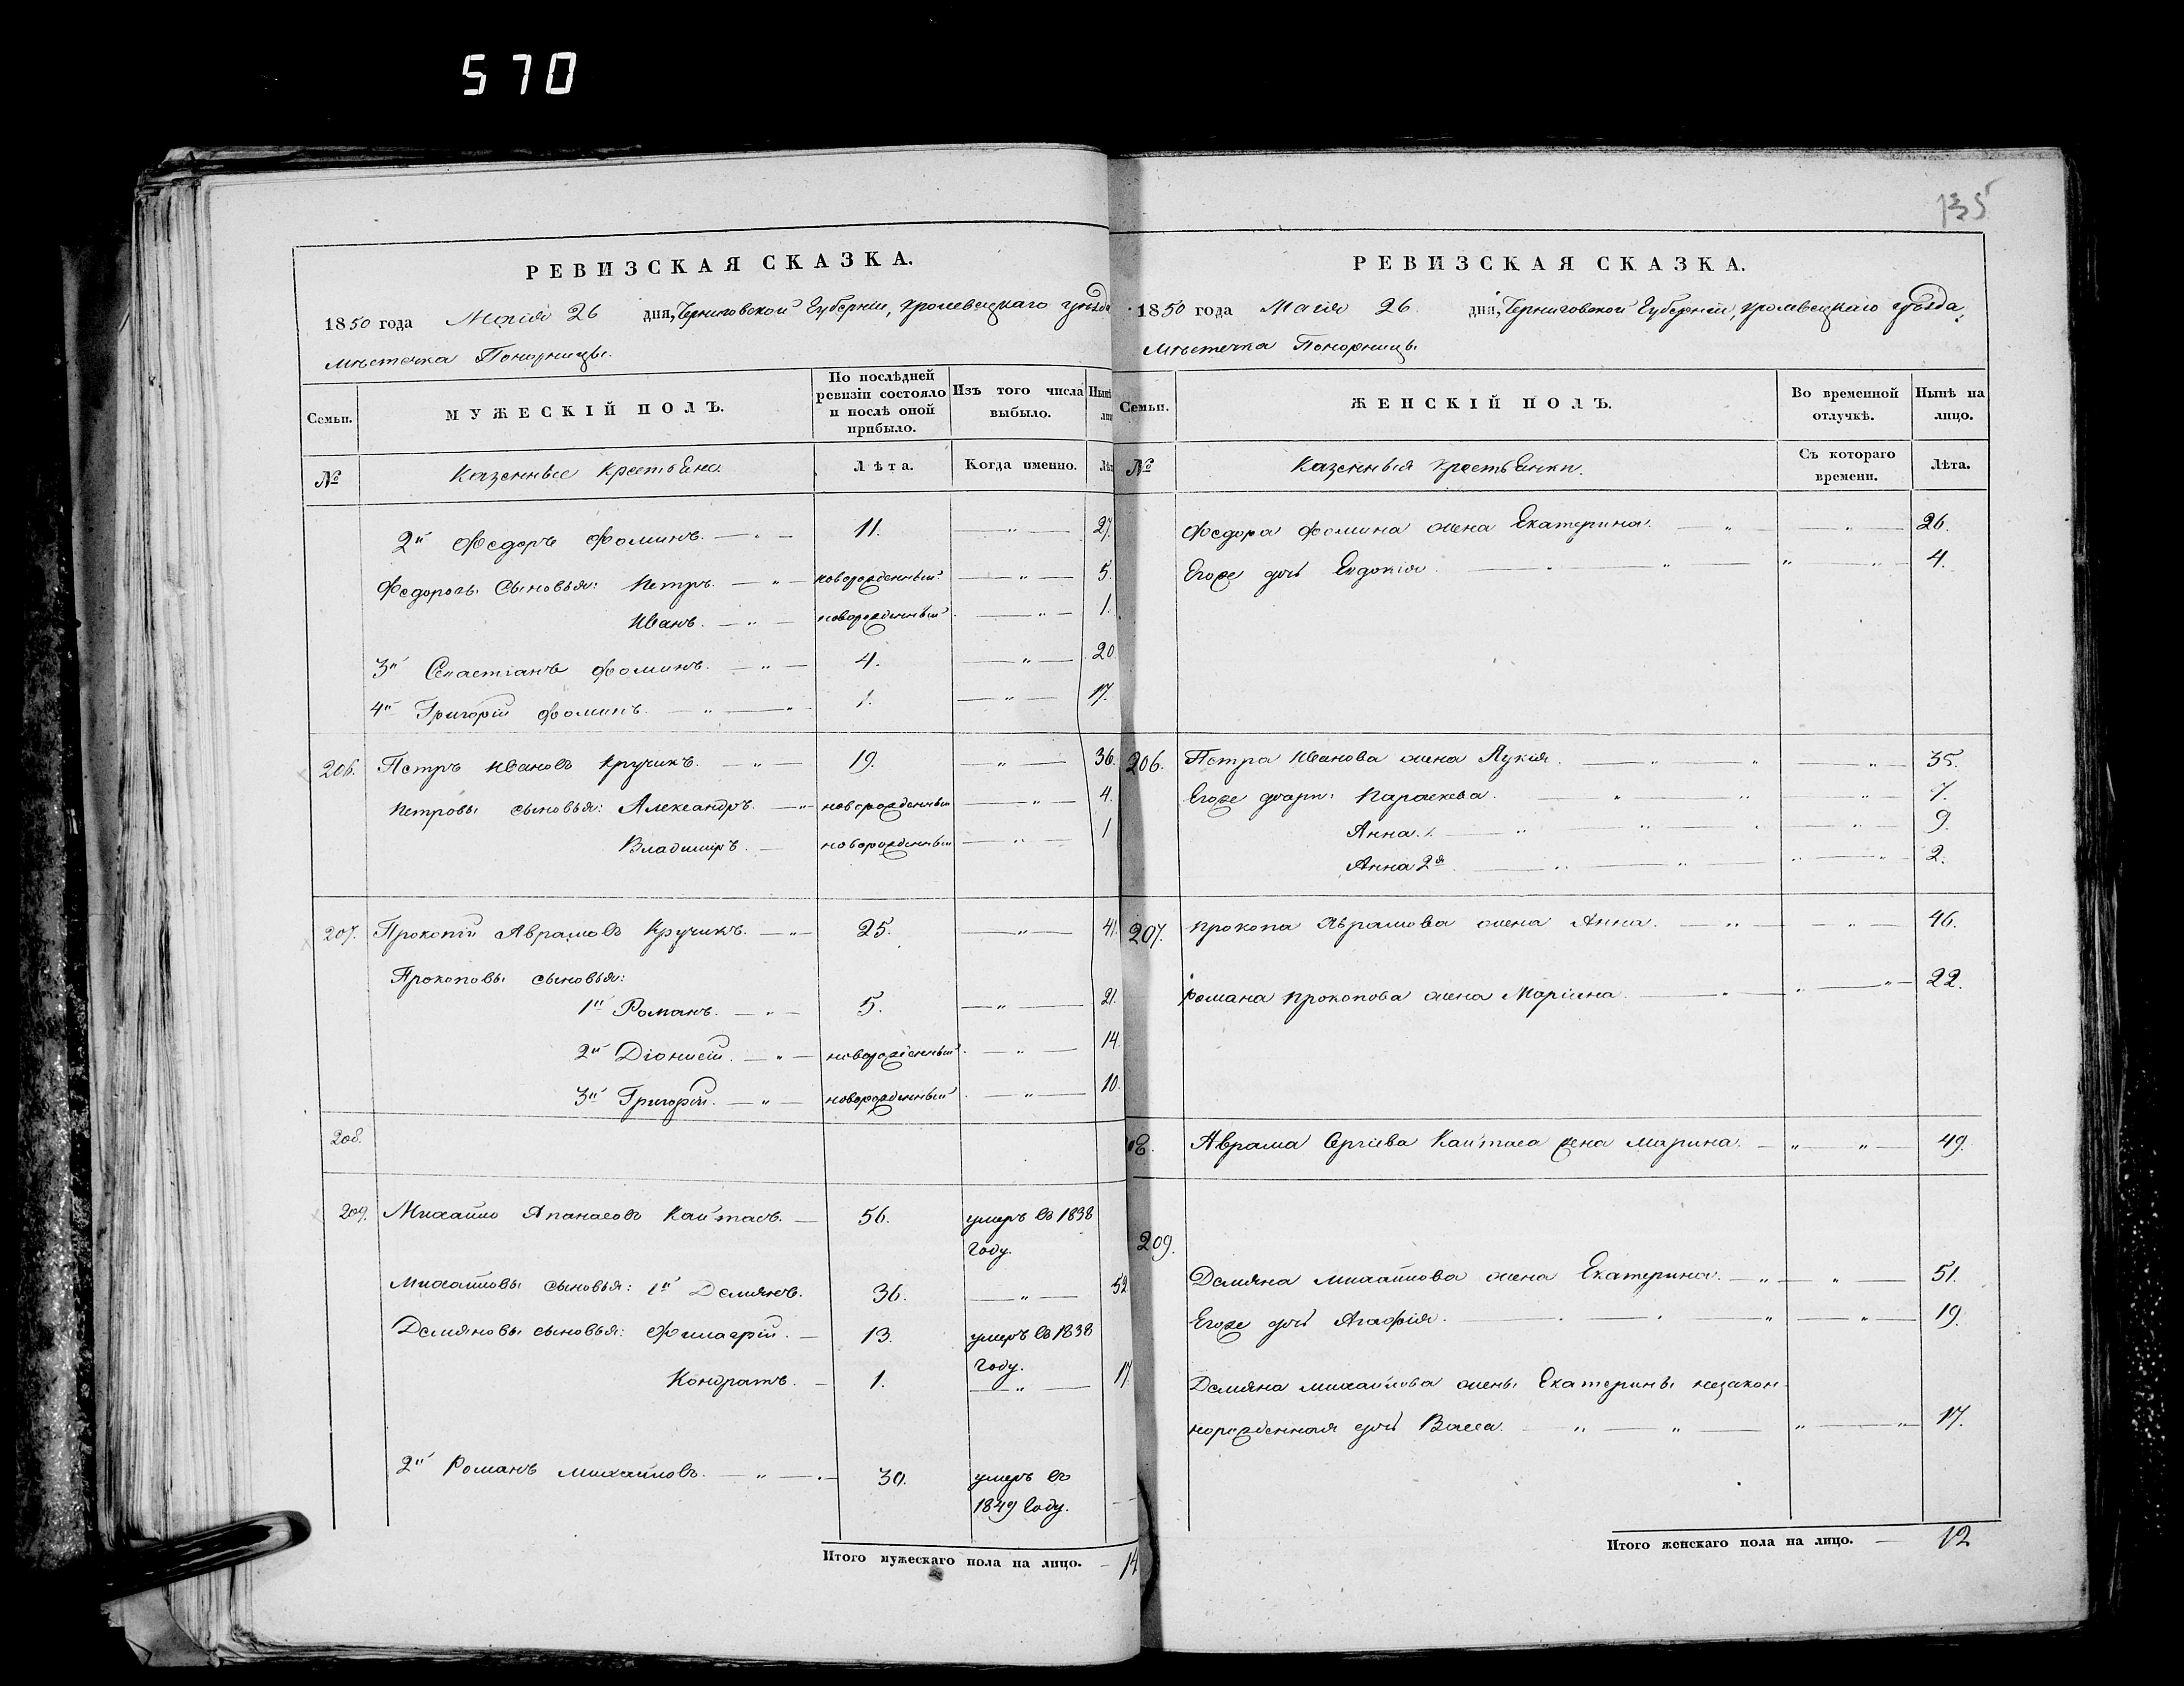 570
135
РЕВИЗСКАЯ СКАЗКА.
1850 года Маія 26 дня, Черниговской Губерніи, Кролевецкаго уѣзда
мѣстечка Понорницы.
Семьи. МУЖЕСКІЙ ПОЛЪ. По послѣдней ревизіи состояло и послѣ оной прибыло. Изъ того числа выбыло.
№ Казенные Крестьяне. Лѣта. Когда именно.
2й Федоръ Фоминъ. — „ — 11. — „ — 27.
Федоровы сыновья: Петръ. — „ — новорожденный. — „ — 5.
Иванъ. — „ — новорожденный. — „ — 1.
3й Севастіанъ Фоминъ. — „ — 4. — „ — 20
4й Григорій Фоминъ. — „ — „ 1. — „ — 17.
206. Петръ Ивановъ Кручикъ. — „ — 19. — „ — 36.
Петровы сыновья: Александръ. — „ новорожденный — „ — 4.
Владиміръ. — новорожденный — „ — 1
207. Прокопій Аврамовъ Кручикъ. — „ — 25. — „ — 41.
Прокоповы сыновья:
1й Романъ. — „ — 5. — „ — 21.
2й Діонисій. — „ — новорожденный. — „ — 14.
3й Григорій. — „ — новорожденный. — „ — 10.
208.
209. Михайло Апанасовъ Кайтасъ. — 56. умеръ въ 1838
году.
Михайловы сыновья: 1й Демянъ. 36. — „ — 52
Демяновы сыновья: Филагрій. — 13. умеръ въ 1838
году.
Кондратъ. — 1. — „ — 17.
2й Романъ Михайловъ. — „ — 30. умеръ въ
1849 году. —
Итого мужескаго пола на лицо. — 14
РЕВИЗСКАЯ СКАЗКА.
1850 года Маія 26. дня, Черниговской Губерніи, Кролевецкаго уѣзда,
мѣстечка Понорницы
Семьи. ЖЕНСКІЙ ПОЛЪ. Во временной отлучкѣ. Нынѣ на лицо.
№ Казенныя крестьянки. Съ котораго времени. Лѣта.
Федора Фомина жена Екатерина. — „ — „ — 26.
Егоже дочь Евдокія. — „ — „ „ 4.
206. Петра Иванова жена Лукія. — „ — „ — „ — 35.
Егоже дочери: Параскева. — „ — „ — „ — 7.
Анна 1. — „ — „ — „ — 9.
Анна 2я — „ — „ — „ „ 2.
207. Прокопа Аврамова жена Анна. — „ — „ — 46.
Романа Прокопова жена Маріяна. — „ — „ — „ 22.
Аврама Сергіева Кайтаса жена Марина. — „ — „ — 49.
209.
Демяна Михайлова жена Екатерина. — „ — „ — 51.
Егоже дочь Агафія. — „ — „ — 19.
Демяна Михайлова жены Екатерины незакон-
норожденная дочь Васса. „ — „ — „ — „ 17.
Итого женскаго пола на лицо. — 12